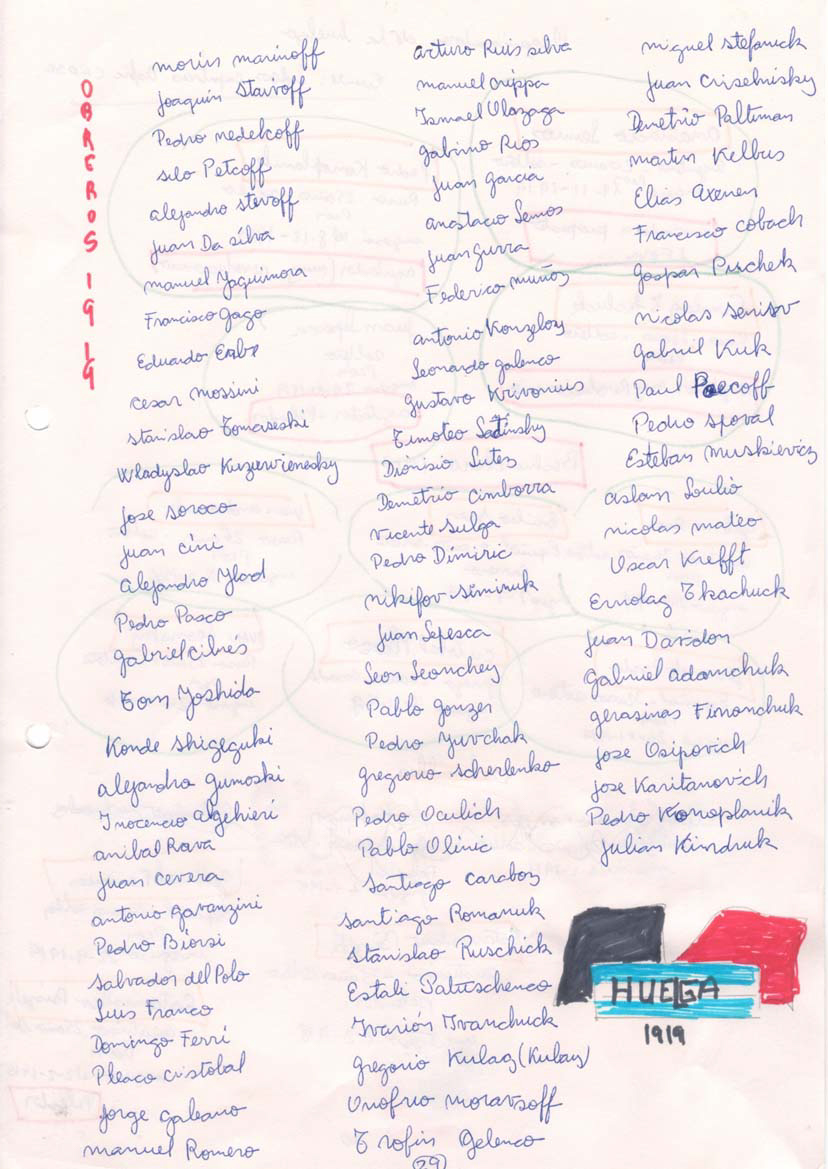 OBREROS 1919
morins marinoff
Joaquin Stavoff
Pedro nedelcoff
silo Petcoff
alejandro stevoff
Juan Da silva
manuel Yaquimora
Francisco Gago
Eduardo
cesar mossini
stanislao Tomaseski
Wladyslao Kuzewienesky
Jose soroco
Juan cini
Alejandro Ylad
Pedro Pasco
gabriel cibres
Tom Yoshida
Konde shigeguki
alejandro gumoski
Inocencio algehieri
anibal Rava
Juan cevera
antonio gavanzini
Pedro Biorsi
salvador del Polo
Luis Franco
Domingo Ferri
Pleaco cristobal
Jorge galeano
manuel Romero
arturo Ruis silva
manuel crippa
Ismael Ulazaga
gabino Rios
Juan garcia
anastacio Lemos
Juan gurra
Federico muñoz
antonio Konzeloz
Leonardo galenco
gustavo Krivonius
Timoteo Satinsky
Dionisio Lutez
Demetrio cimborra
Vicente sulga
Pedro Dimiric
nikifov siminuk
Juan Lepesca
Leon Leonchey
Pablo gonzer
Pedro Yurchak
gregiorio scherlenko
Pedro Oculich
Pablo Olinic
santiago caraboz
santiago Romanuk
stanislao Ruschick
Estali Patuschenco
Ivariós Ivanchuck
gregorio Kulaz (Kulay)
Onofrio moravsoff
Trofin gelenco
miguel stefanick
Juan criselnisky
Demetrio Paltiman
martin Kelbus
Elias axenen
Francisco cobach
gaspar Puschek
nicolas senisv
gabriel Kuk
Paul Paecoff
Pedro spoval
Esteban muskieviez
aslam Loulio
nicolas mateo
Oscar Krefft
Ermolag Tkachuck
Juan Davidon
Gabriel adamchuk
gerasinas Fimonchuk
Jose Osipovich
Jose Karitanovich
Pedro Konoplanik
Julian Kindruk
HUELGA
1919
29